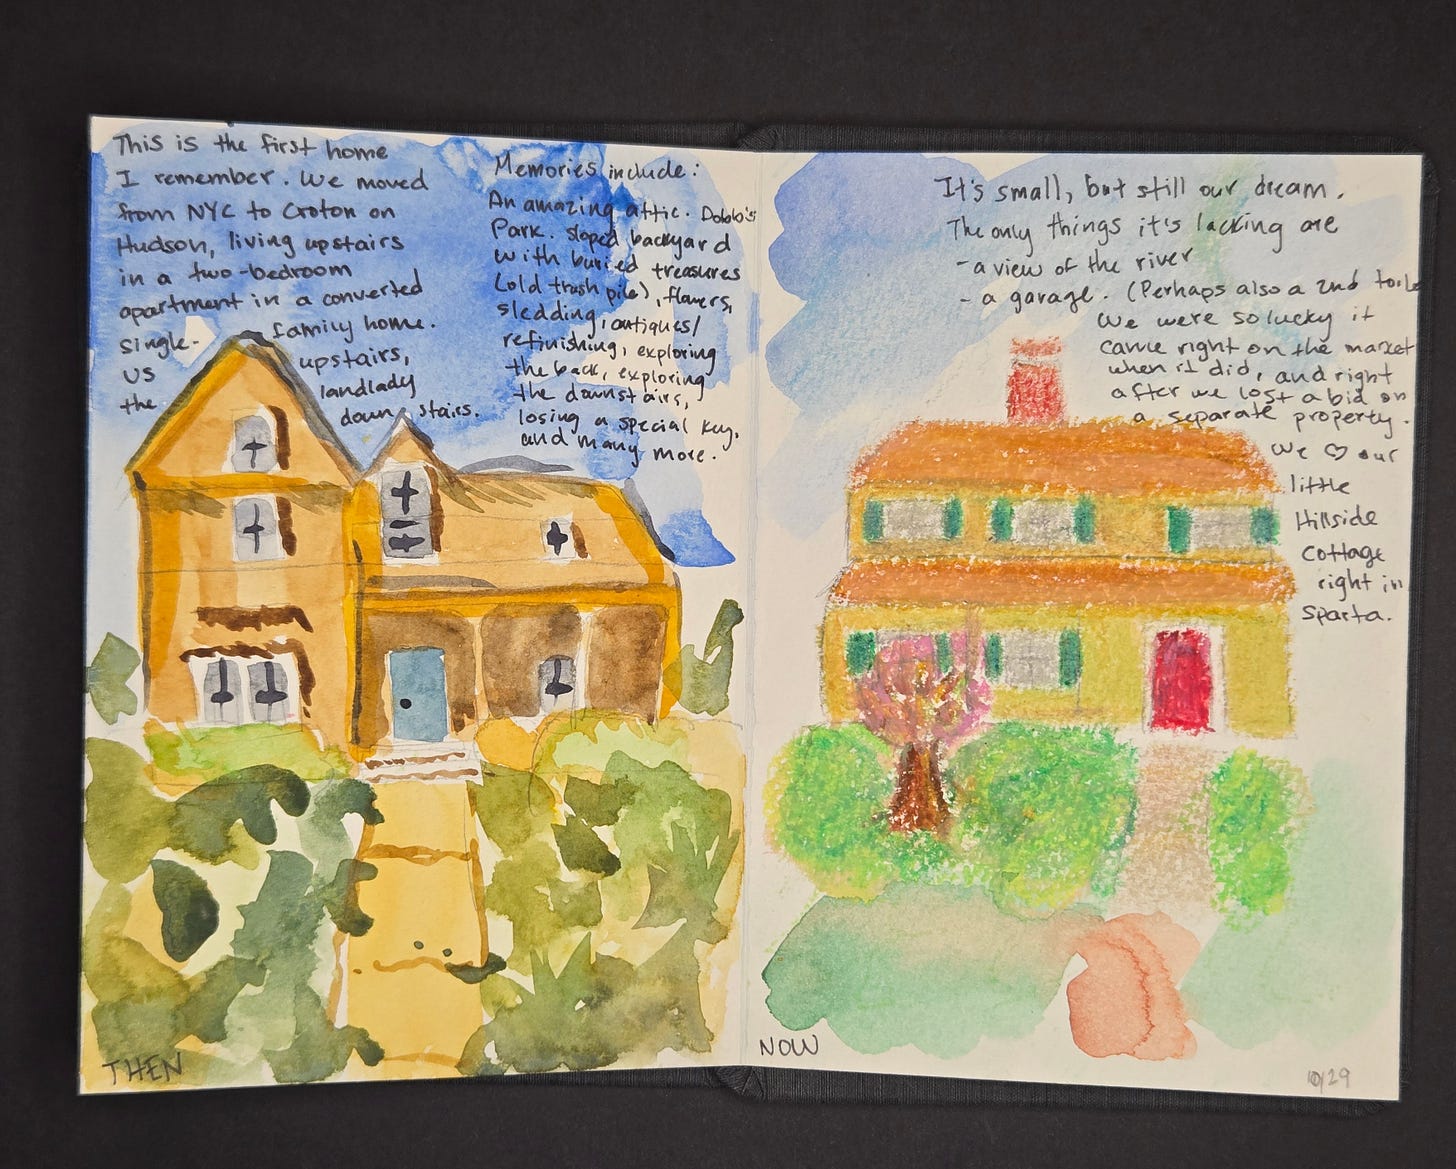 This is the first home
I remember. We moved
from NYC to Croton on
Hudson, living upstairs
in a two-bedroom
apartment in a converted
single- family home.
US upstairs,
the landlady
down stairs.
Memories include:
An amazing attic. Dobbs's
Park. sloped backyard
with buried treasures
(old trash pile), flowers,
sledding, antiques/
refinishing, exploring
the back, exploring
the downstairs,
losing a special key,
and many more.
THEN
It's small, but still our dream.
The only things it's lacking are
- a view of the river
- a garage. (Perhaps also a 2nd toile
We were so lucky it
came right on the market
when it did, and right
after we lost a bid on
a separate property.
We ♡ our
little
Hillside
Cottage
right in
Sparta.
NOW
10/29